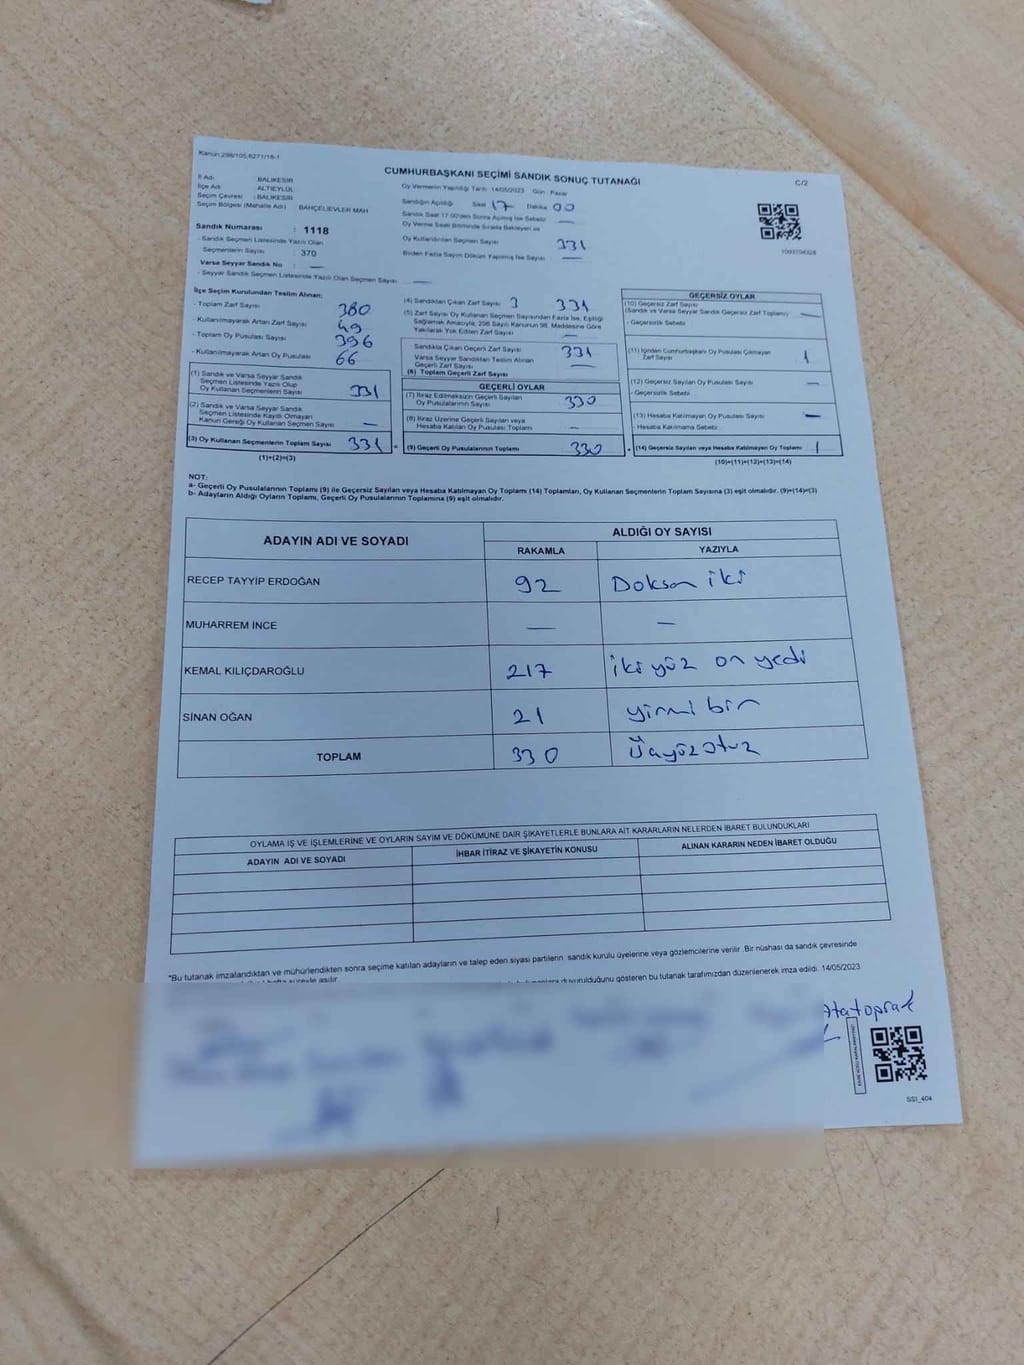 Kanun:298/105,6271/18-1
CUMHURBAŞKANI SEÇİMİ SANDIK SONUÇ TUTANAĞI
C/2
İl Adı : BALIKESİR
İlçe Adı : ALTIEYLÜL
Seçim Çevresi : BALIKESİR
Seçim Bölgesi (Mahalle Adı) : BAHÇELİEVLER MAH
Sandık Numarası : 1118
- Sandık Seçmen Listesinde Yazılı Olan
Seçmenlerin Sayısı : 370
Varsa Seyyar Sandık No : —
- Seyyar Sandık Seçmen Listesinde Yazılı Olan Seçmen Sayısı : —
Oy Vermenin Yapıldığı Tarih : 14/05/2023 Gün : Pazar
Sandığın Açıldığı Saat 17 Dakika 00
Sandık Saat 17:00'den Sonra Açılmış İse Sebebi : —
Oy Verme Saati Bitiminde Sırada Bekleyen ve
Oy Kullandırılan Seçmen Sayısı 331
Birden Fazla Sayım Döküm Yapılmış İse Sayısı : —
1093704328
İlçe Seçim Kurulundan Teslim Alınan;
- Toplam Zarf Sayısı 380
- Kullanılmayarak Artan Zarf Sayısı 49
- Toplam Oy Pusulası Sayısı 396
- Kullanılmayarak Artan Oy Pusulası 66
(1) Sandık ve Varsa Seyyar Sandık
Seçmen Listesinde Yazılı Olup
Oy Kullanan Seçmenlerin Sayısı 331
(2) Sandık ve Varsa Seyyar Sandık
Seçmen Listesinde Kayıtlı Olmayan
Kanun Gereği Oy Kullanan Seçmen Sayısı —
(3) Oy Kullanan Seçmenlerin Toplam Sayısı 331
(1)+(2)=(3)
(4) Sandıktan Çıkan Zarf Sayısı 3 331
(5) Zarf Sayısı Oy Kullanan Seçmen Sayısından Fazla İse, Eşitliği
Sağlamak Amacıyla, 298 Sayılı Kanunun 98. Maddesine Göre
Yakılarak Yok Edilen Zarf Sayısı —
Sandıkta Çıkan Geçerli Zarf Sayısı 331
Varsa Seyyar Sandıktan Teslim Alınan
Geçerli Zarf Sayısı —
(6) Toplam Geçerli Zarf Sayısı
GEÇERLİ OYLAR
(7) İtiraz Edilmeksizin Geçerli Sayılan
Oy Pusulalarının Sayısı 330
(8) İtiraz Üzerine Geçerli Sayılan veya
Hesaba Katılan Oy Pusulası Toplamı —
= (9) Geçerli Oy Pusulalarının Toplamı 330
GEÇERSİZ OYLAR
(10) Geçersiz Zarf Sayısı
(Sandık ve Varsa Seyyar Sandık Geçersiz Zarf Toplamı) —
- Geçersizlik Sebebi :
(11) İçinden Cumhurbaşkanı Oy Pusulası Çıkmayan
Zarf Sayısı 1
(12) Geçersiz Sayılan Oy Pusulası Sayısı —
- Geçersizlik Sebebi :
(13) Hesaba Katılmayan Oy Pusulası Sayısı —
- Hesaba Katılmama Sebebi :
+ (14) Geçersiz Sayılan veya Hesaba Katılmayan Oy Toplamı 1
(10)+(11)+(12)+(13)=(14)
NOT:
a- Geçerli Oy Pusulalarının Toplamı (9) ile Geçersiz Sayılan veya Hesaba Katılmayan Oy Toplamı (14) Toplamları, Oy Kullanan Seçmenlerin Toplam Sayısına (3) eşit olmalıdır. (9)+(14)=(3)
b- Adayların Aldığı Oyların Toplamı, Geçerli Oy Pusulalarının Toplamına (9) eşit olmalıdır.
ADAYIN ADI VE SOYADI
ALDIĞI OY SAYISI
RAKAMLA YAZIYLA
RECEP TAYYİP ERDOĞAN 92 Doksan iki
MUHARREM İNCE — —
KEMAL KILIÇDAROĞLU 217 iki yüz on yedi
SİNAN OĞAN 21 yirmi bir
TOPLAM 330 Üçyüzotuz
OYLAMA İŞ VE İŞLEMLERİNE VE OYLARIN SAYIM VE DÖKÜMÜNE DAİR ŞİKAYETLERLE BUNLARA AİT KARARLARIN NELERDEN İBARET BULUNDUKLARI
ADAYIN ADI VE SOYADI İHBAR İTİRAZ VE ŞİKAYETİN KONUSU ALINAN KARARIN NEDEN İBARET OLDUĞU
*Bu tutanak imzalandıktan ve mühürlendikten sonra seçime katılan adayların ve talep eden siyasi partilerin sandık kurulu üyelerine veya gözlemcilerine verilir .Bir nüshası da sandık çevresinde
hafta süreyle asılır.
duyurulduğunu gösteren bu tutanak tarafımızdan düzenlenerek imza edildi. 14/05/2023
Atatoprak
SSI_404